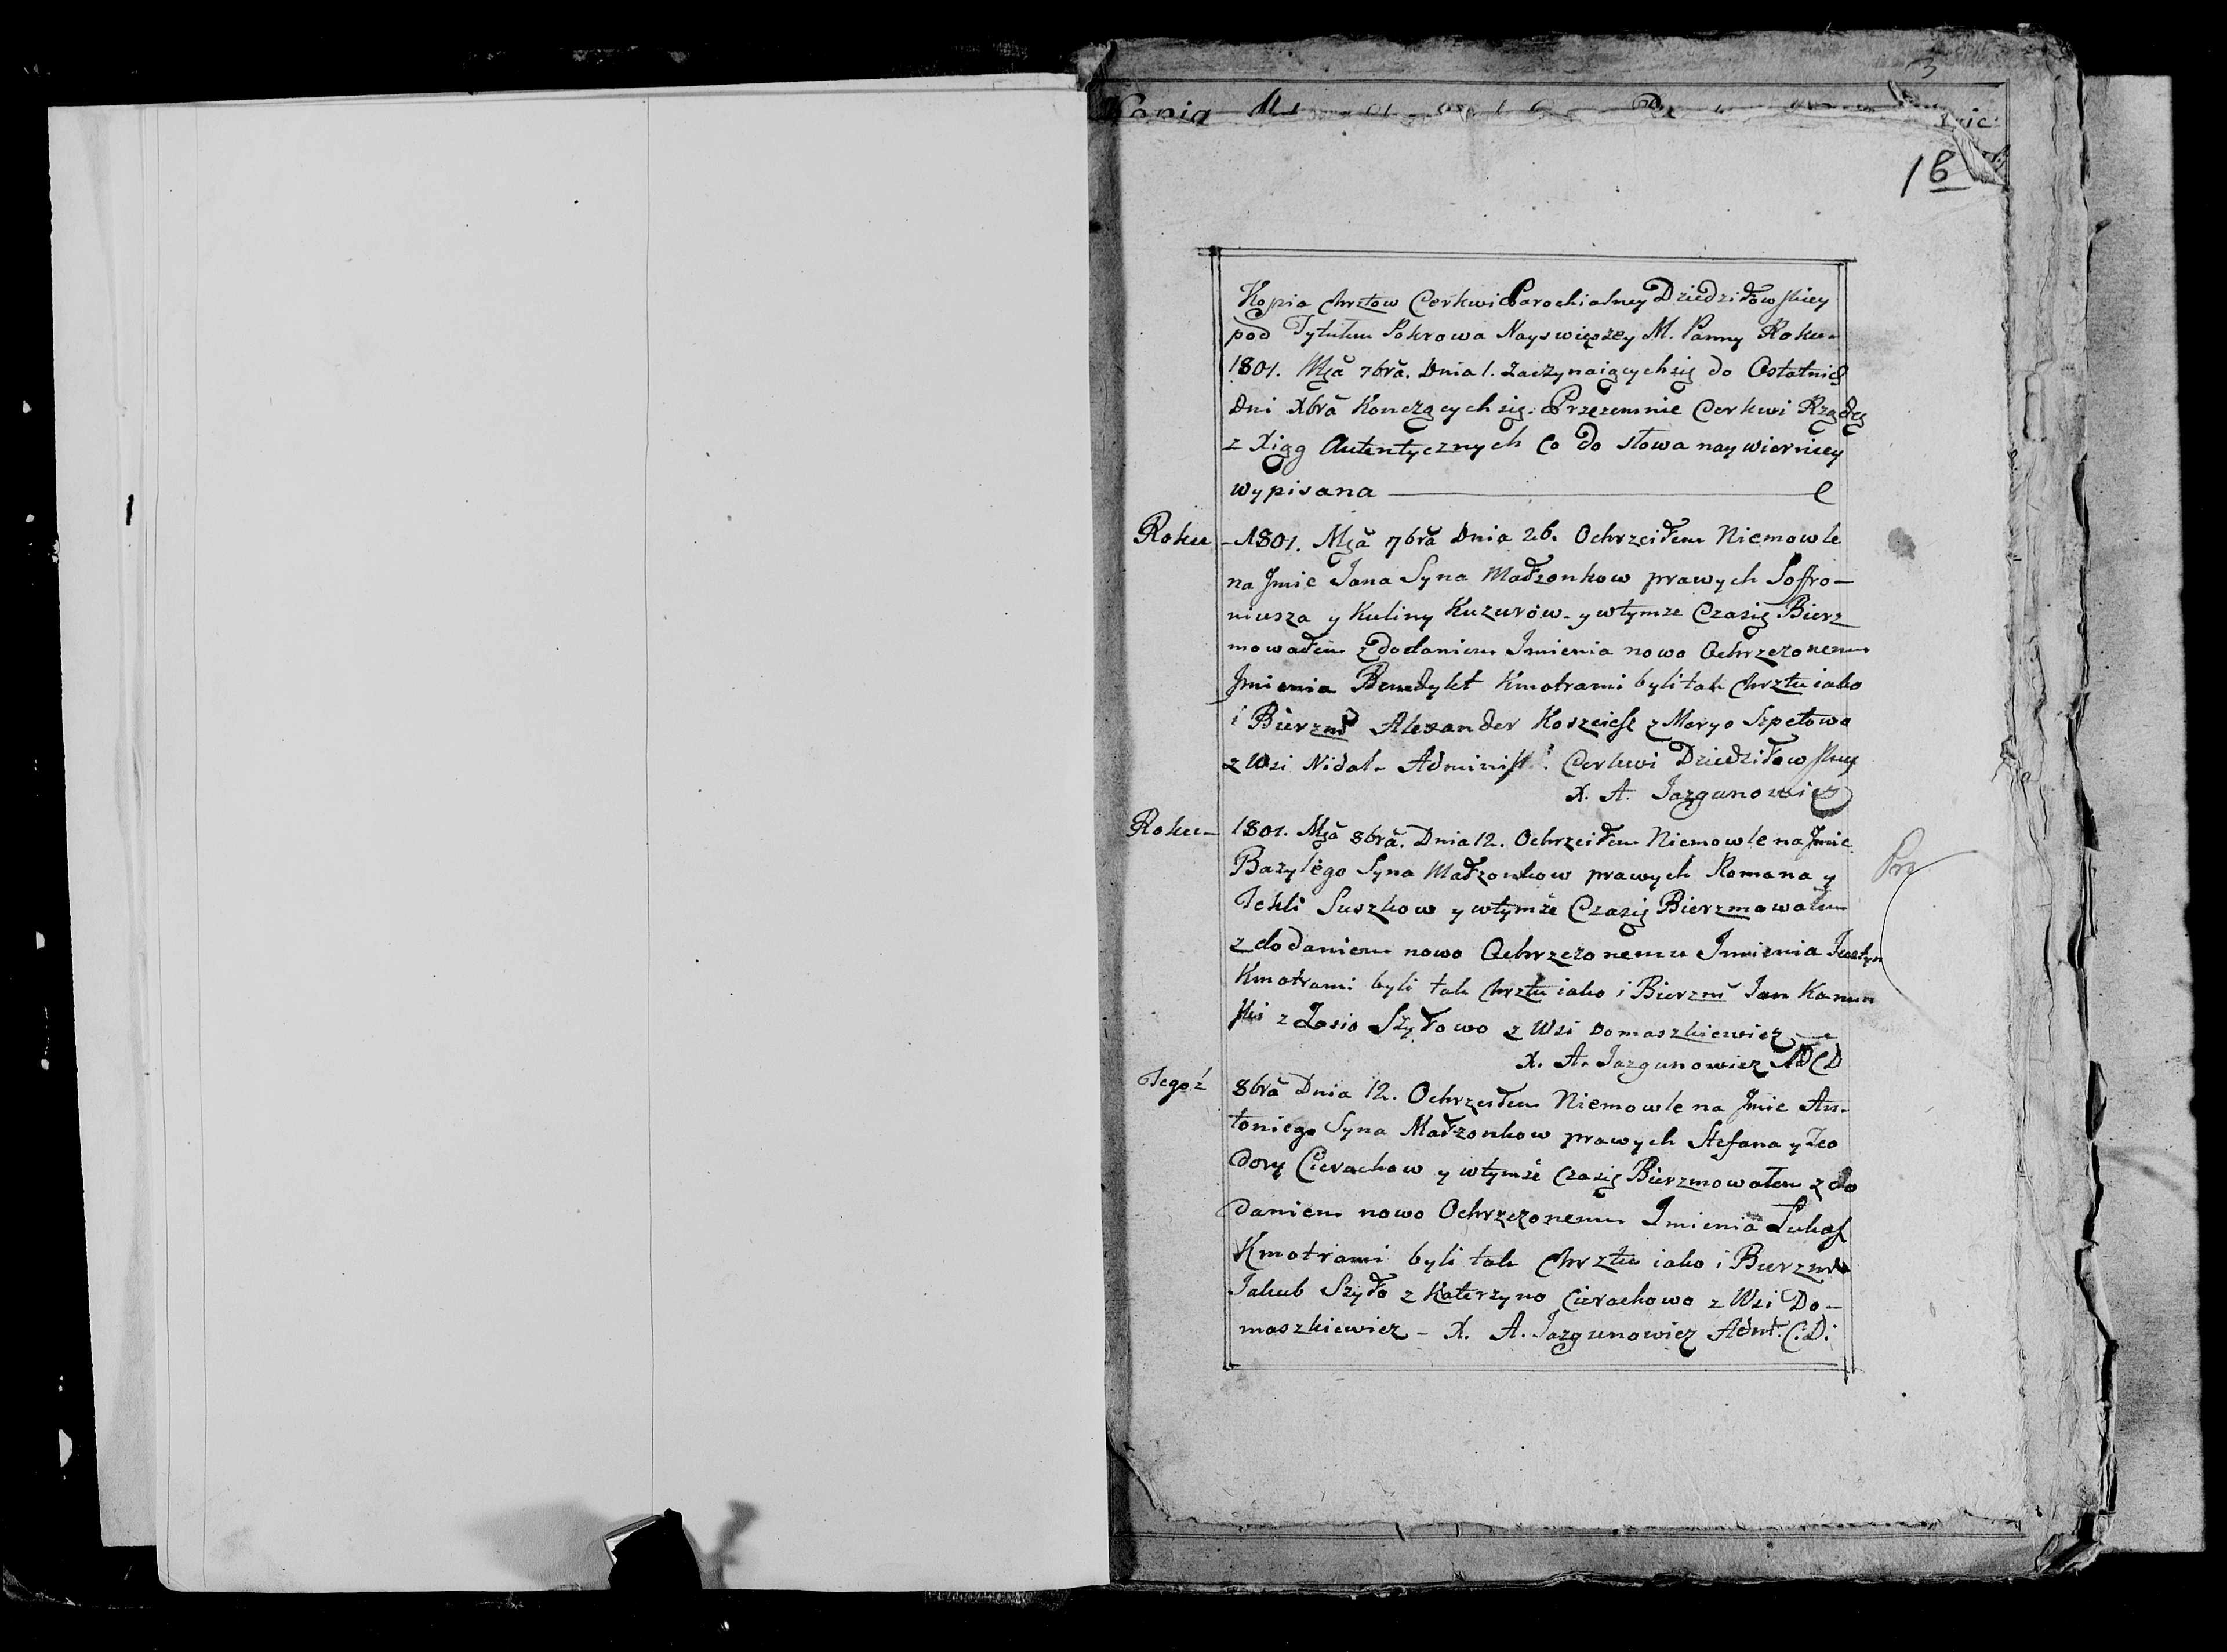 3
Kopia
18
Kopia Chrztow Cerkwi Parochialney Dziedziłowskiey
pod Tytułem Pokrowa Nayswięszey M. Panny Roku
1801. Mcă 7bră. Dnia 1. zaczynaiących się do Ostatnich
Dni Xbră Konczących się. Przezemnie Cerkwi Rządcę
z Xiąg Autentycznych Co do słowa nay wierniey
wypisana
Roku - 1801. Mcă 7bră Dnia 26. Ochrzciłem Niemowle
na Jmie Jana Syna Małżonkow prawych Soffro-
niusza y Kuliny Kuzurów - y wtymże Czasię Bierz
mowałem z dodaniem Jmienia nowo Ochrzczonemu
Jmienia Benedykt Kmotrami byli tak Chrztu iako
i Bierzm Alexander Koszcieh z Maryo Szpetowo
z Wsi Nidal - Administ. Cerkwi Dziedziłowskiey
X. A. Jazgunowicz
Roku - 1801. Mcă 8bră. Dnia 12. Ochrzciłem Niemowle na Jmie
Bazylego Syna Małżonkow prawych Romana y
Tekli Suszkow y wtymże Czasię Bierzmowałem
z dodaniem nowo Ochrzczonemu Jmienia Justyn
Kmotrami byli tak Chrztu iako i Bierzm Jan Kamin
ski z Zosio Szyłowo z Wsi Domaszkiewicz
X. A. Jazgunowicz ADCD
Tegoż 8bră Dnia 12. Ochrzciłem Niemowle na Jmie An-
toniego Syna Małżonkow prawych Stefana y Teo
dory Cierachow y wtymże Czasię Bierzmowałem z do
daniem nowo Ochrzczonemu Jmienia Łukasz
Kmotrami byli tak Chrztu iako i Bierzm
Jakub Szyło z Katerzyno Cierachowo z Wsi Do-
maszkiewicz - X. A. Jazgunowicz Admt. C. D:
Prz